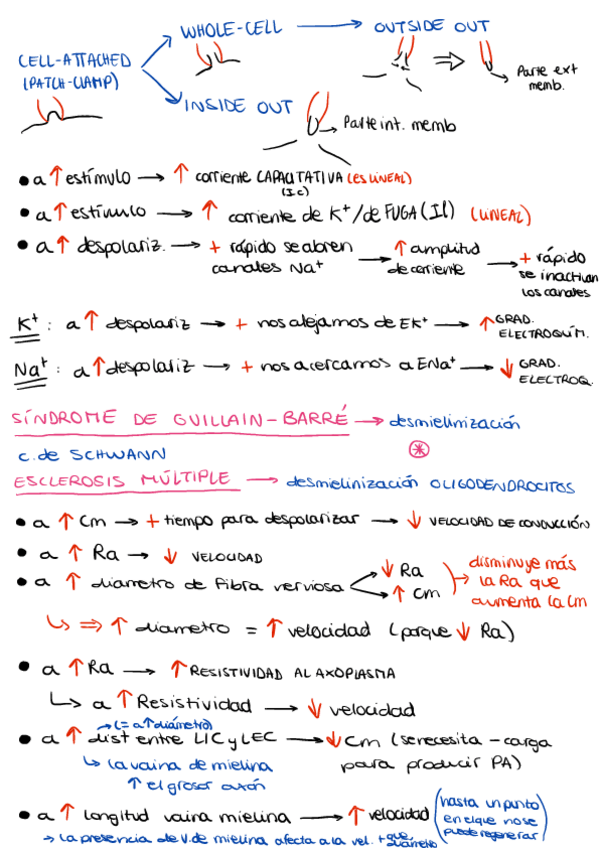 WHOLE-CELL → OUTSIDE OUT
CELL-ATTACHED
(PATCH-CLAMP)
Parte ext
memb.
INSIDE OUT
Parte int. memb
• a ↑ estímulo → ↑ corriente CAPACITATIVA (ES LINEAL)
(Ic)
• a ↑ estímulo → ↑ corriente de K+/de FUGA (Il) (LINEAL)
• a ↑ despolariz. → + rápido se abren
canales Na+ → ↑ amplitud
de corriente → + rápido
se inactivan
los canales
K+: a ↑ despolariz → + nos alejamos de EK+ → ↑ GRAD.
ELECTROQUÍM.
Na+: a ↑ despolariz → + nos acercamos a ENa+ → ↓ GRAD.
ELECTROQ.
SÍNDROME DE GUILLAIN-BARRÉ → desmielinización
c. de SCHWANN
*
ESCLEROSIS MÚLTIPLE → desmielinización OLIGODENDROCITOS
• a ↑ Cm → + tiempo para despolarizar → ↓ VELOCIDAD DE CONDUCCIÓN
• a ↑ Ra → ↓ VELOCIDAD
• a ↑ diámetro de fibra nerviosa ↓ Ra
↑ Cm
disminuye más
la Ra que
aumenta la Cm
↳ ⇒ ↑ diametro = ↑ velocidad (porque ↓ Ra)
• a ↑ Ra → ↑ RESISTIVIDAD AL AXOPLASMA
↳ a ↑ Resistividad → ↓ velocidad
→ (= a ↑ diámetro)
• a ↑ dist entre LIC y LEC → ↓ Cm (se necesita - carga
para producir PA)
↳ la vaina de mielina
↑ el grosor axón
• a ↑ longitud vaina mielina → ↑ velocidad (hasta un punto
en el que no se
puede regenerar)
→ La presencia de V. de mielina afecta a la vel. + que
diámetro